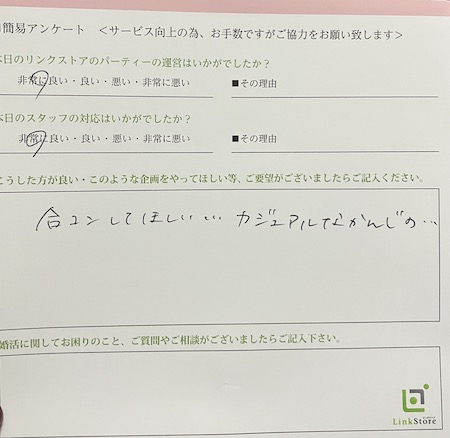 簡易アンケート ＜サービス向上の為、お手数ですがご協力をお願い致します＞
本日のリンクストアのパーティーの運営はいかがでしたか？
非常に良い・良い・悪い・非常に悪い ■その理由
本日のスタッフの対応はいかがでしたか？
非常に良い・良い・悪い・非常に悪い ■その理由
こうした方が良い・このような企画をやってほしい等、ご要望がございましたらご記入ください。
合コンしてほしい… カジュアルなかんじの…
婚活に関してお困りのこと、ご質問やご相談がございましたらご記入下さい。
LinkStore